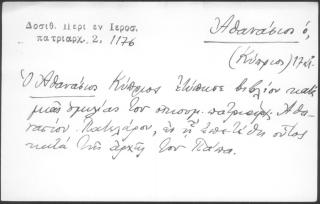 Δοσιθ. Περί εν Ιεροσ.
πατριαρχ. 2. 1176
Ἀθανάσιος ὁ,
(Κύπριος) 17 αἰ.
Ὁ Ἀθανάσιος Κύπριος ἐτύπωσε βιβλίον κατὰ
μιᾶς ὁμιλίας τοῦ οἰκουμ. πατριάρχ. Ἀθα-
νασίου Πατελάρου, ἐν ᾗ ἐπετέθη οὗτος
κατὰ τῆς ἀρχῆς τοῦ Πάπα.